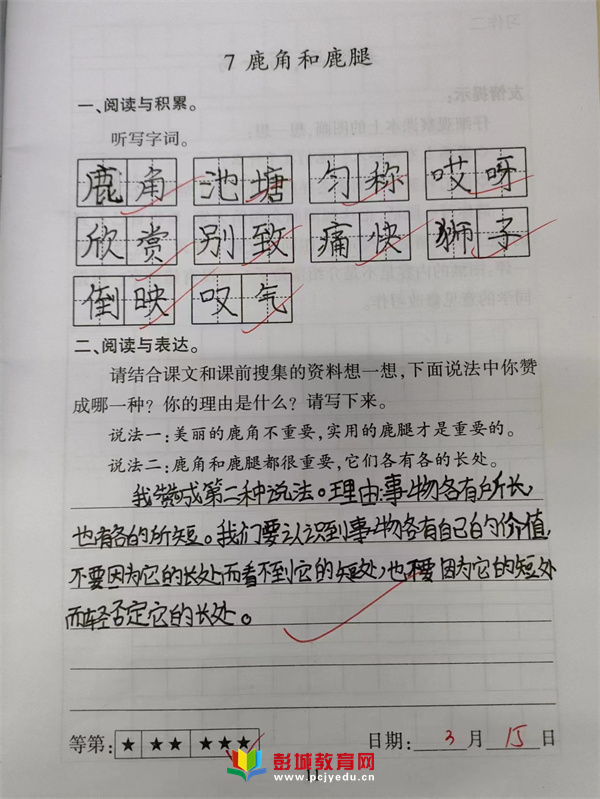 7 鹿角和鹿腿
一、阅读与积累。
听写字词。
鹿角 池塘 匀称 哎呀
欣赏 别致 痛快 狮子
倒映 叹气
二、阅读与表达。
请结合课文和课前搜集的资料想一想，下面说法中你赞
成哪一种？你的理由是什么？请写下来。
说法一：美丽的鹿角不重要，实用的鹿腿才是重要的。
说法二：鹿角和鹿腿都很重要，它们各有各的长处。
我赞成第二种说法。理由：事物各有所长，
也有各的所短。我们要认识到事物各有自己的价值，
不要因为它的长处而看不到它的短处，也不要因为它的短处
而轻否定它的长处。
等第：★ ★★ ★★★ 日期：3月15日
彭城教育网
www.pcjyedu.cn